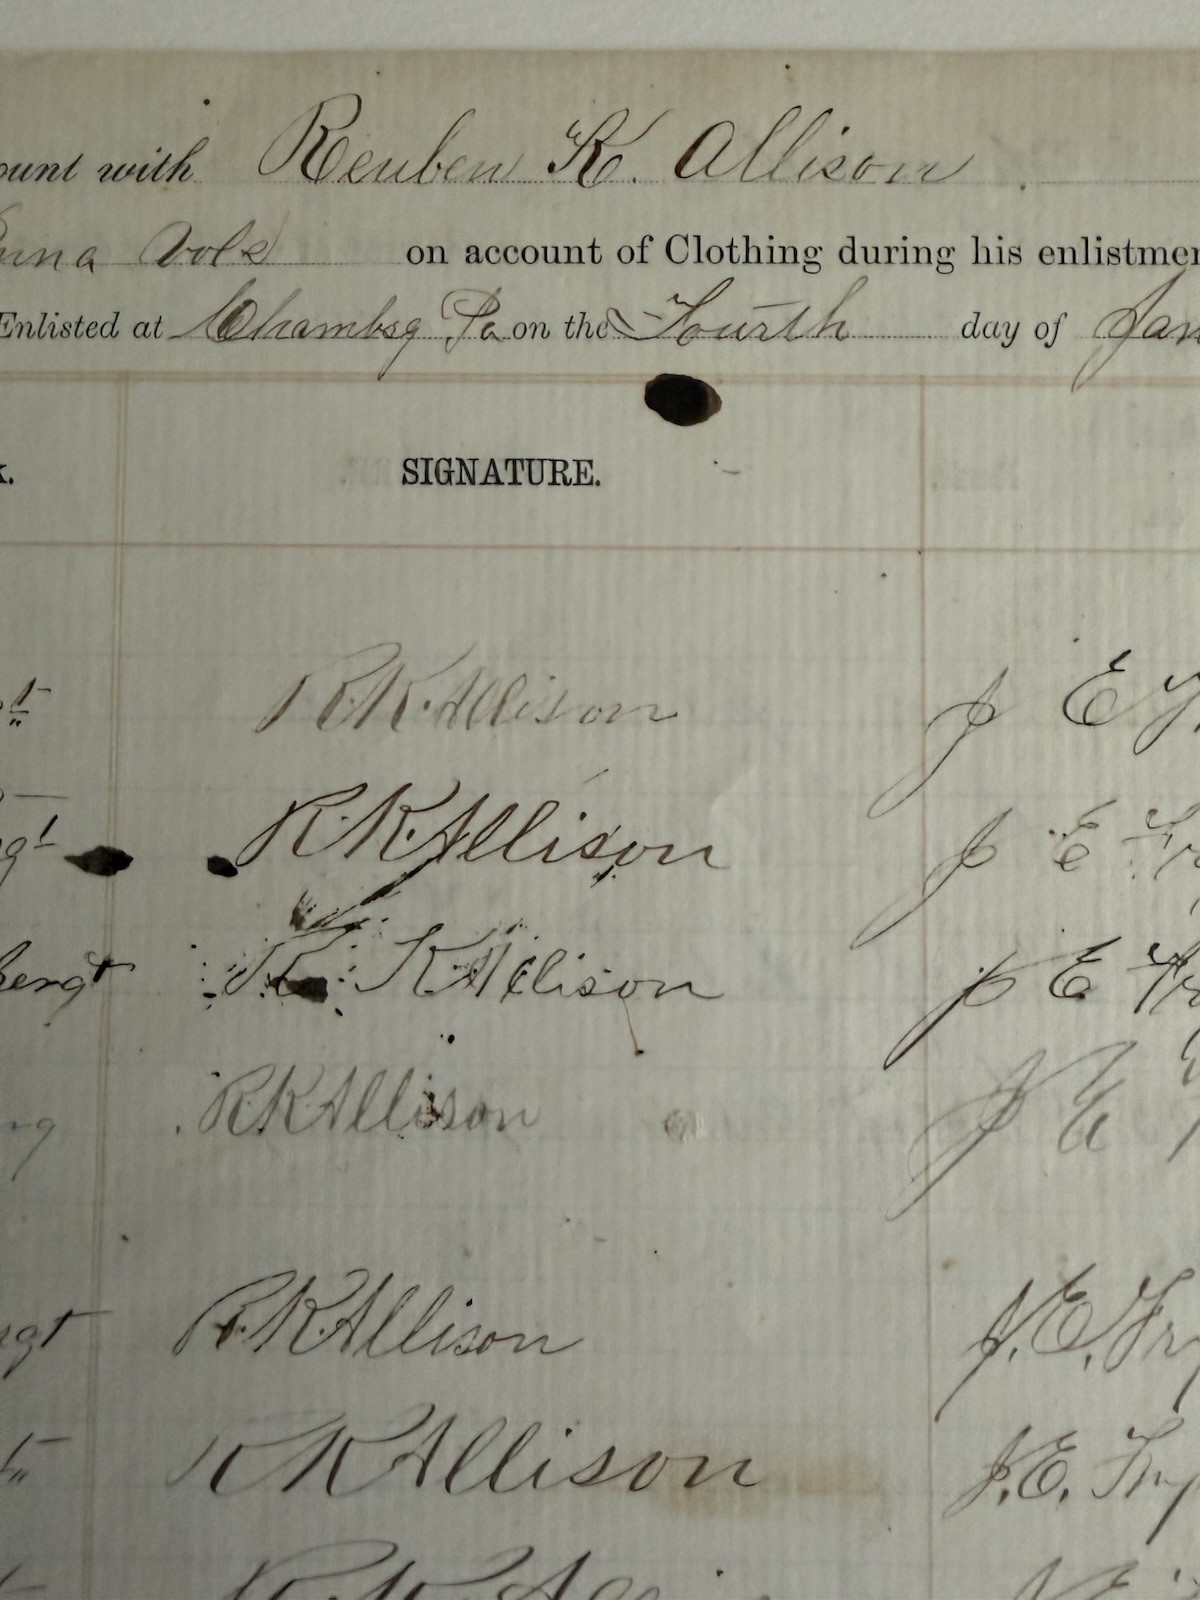 ount with Reuben K. Allison
enna Vols on account of Clothing during his enlistmen
Enlisted at Chambsg Pa on the Fourth day of Jan
K. SIGNATURE.
R.K. Allison J E
R.K. Allison J E
Sergt R. K Allison J E
R K Allison J E
R. K. Allison J. E. Fry
R K Allison J. E. Fry
R. K.